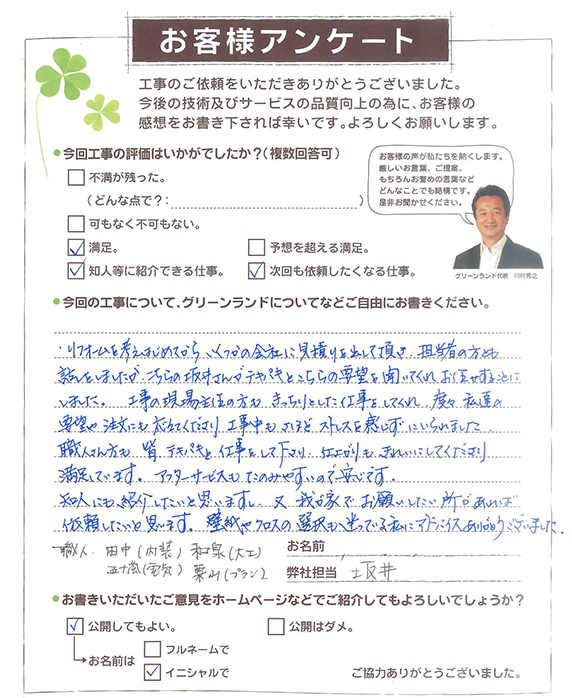 お客様アンケート
工事のご依頼をいただきありがとうございました。
今後の技術及びサービスの品質向上の為に、お客様の
感想をお書き下されば幸いです。よろしくお願いします。
●今回工事の評価はいかがでしたか?(複数回答可)
□不満が残った。
(どんな点で?: )
□可もなく不可もない。
☑満足。 □予想を超える満足。
☑知人等に紹介できる仕事。 ☑次回も依頼したくなる仕事。
お客様の声が私たちを熱くします。
厳しいお言葉、ご提案、
もちろんお誉めの言葉など
どんなことでも結構です。
是非お聞かせください。
グリーンランド代表 川村秀之
●今回の工事について、グリーンランドについてなどご自由にお書きください。
・リフォームを考えはじめてから いくつかの会社に見積りを出して頂き 担当者の方とも
話をしましたが こちらの坂井さんがテキパキとこちらの要望を聞いてくれ お任せすることに
しました。 工事の現場主任の方も きっちりとした仕事をしてくれ 度々 私達の
要望や注文にも応えてくださり 工事中も さほど ストレスを感じずにいられました
職人さん方も 皆 テキパキと仕事をして下さり 仕上がりも きれいにしてくださり
満足しています。 アフターサービスも たのみやすいので安心です。
知人にも紹介したいと思いますし 又 我が家で お願いしたい所があれば
依頼したいと思います。 壁紙やクロスの選択も 迷っている私にアドバイスありがとうございました.
職人. 田中(内装) 和泉(大工)
五十嵐(電気) 栗山(プラン)
お名前
弊社担当 坂井
●お書きいただいたご意見をホームページなどでご紹介してもよろしいでしょうか?
☑公開してもよい。 □公開はダメ。
→お名前は □フルネームで
☑イニシャルで
ご協力ありがとうございました。